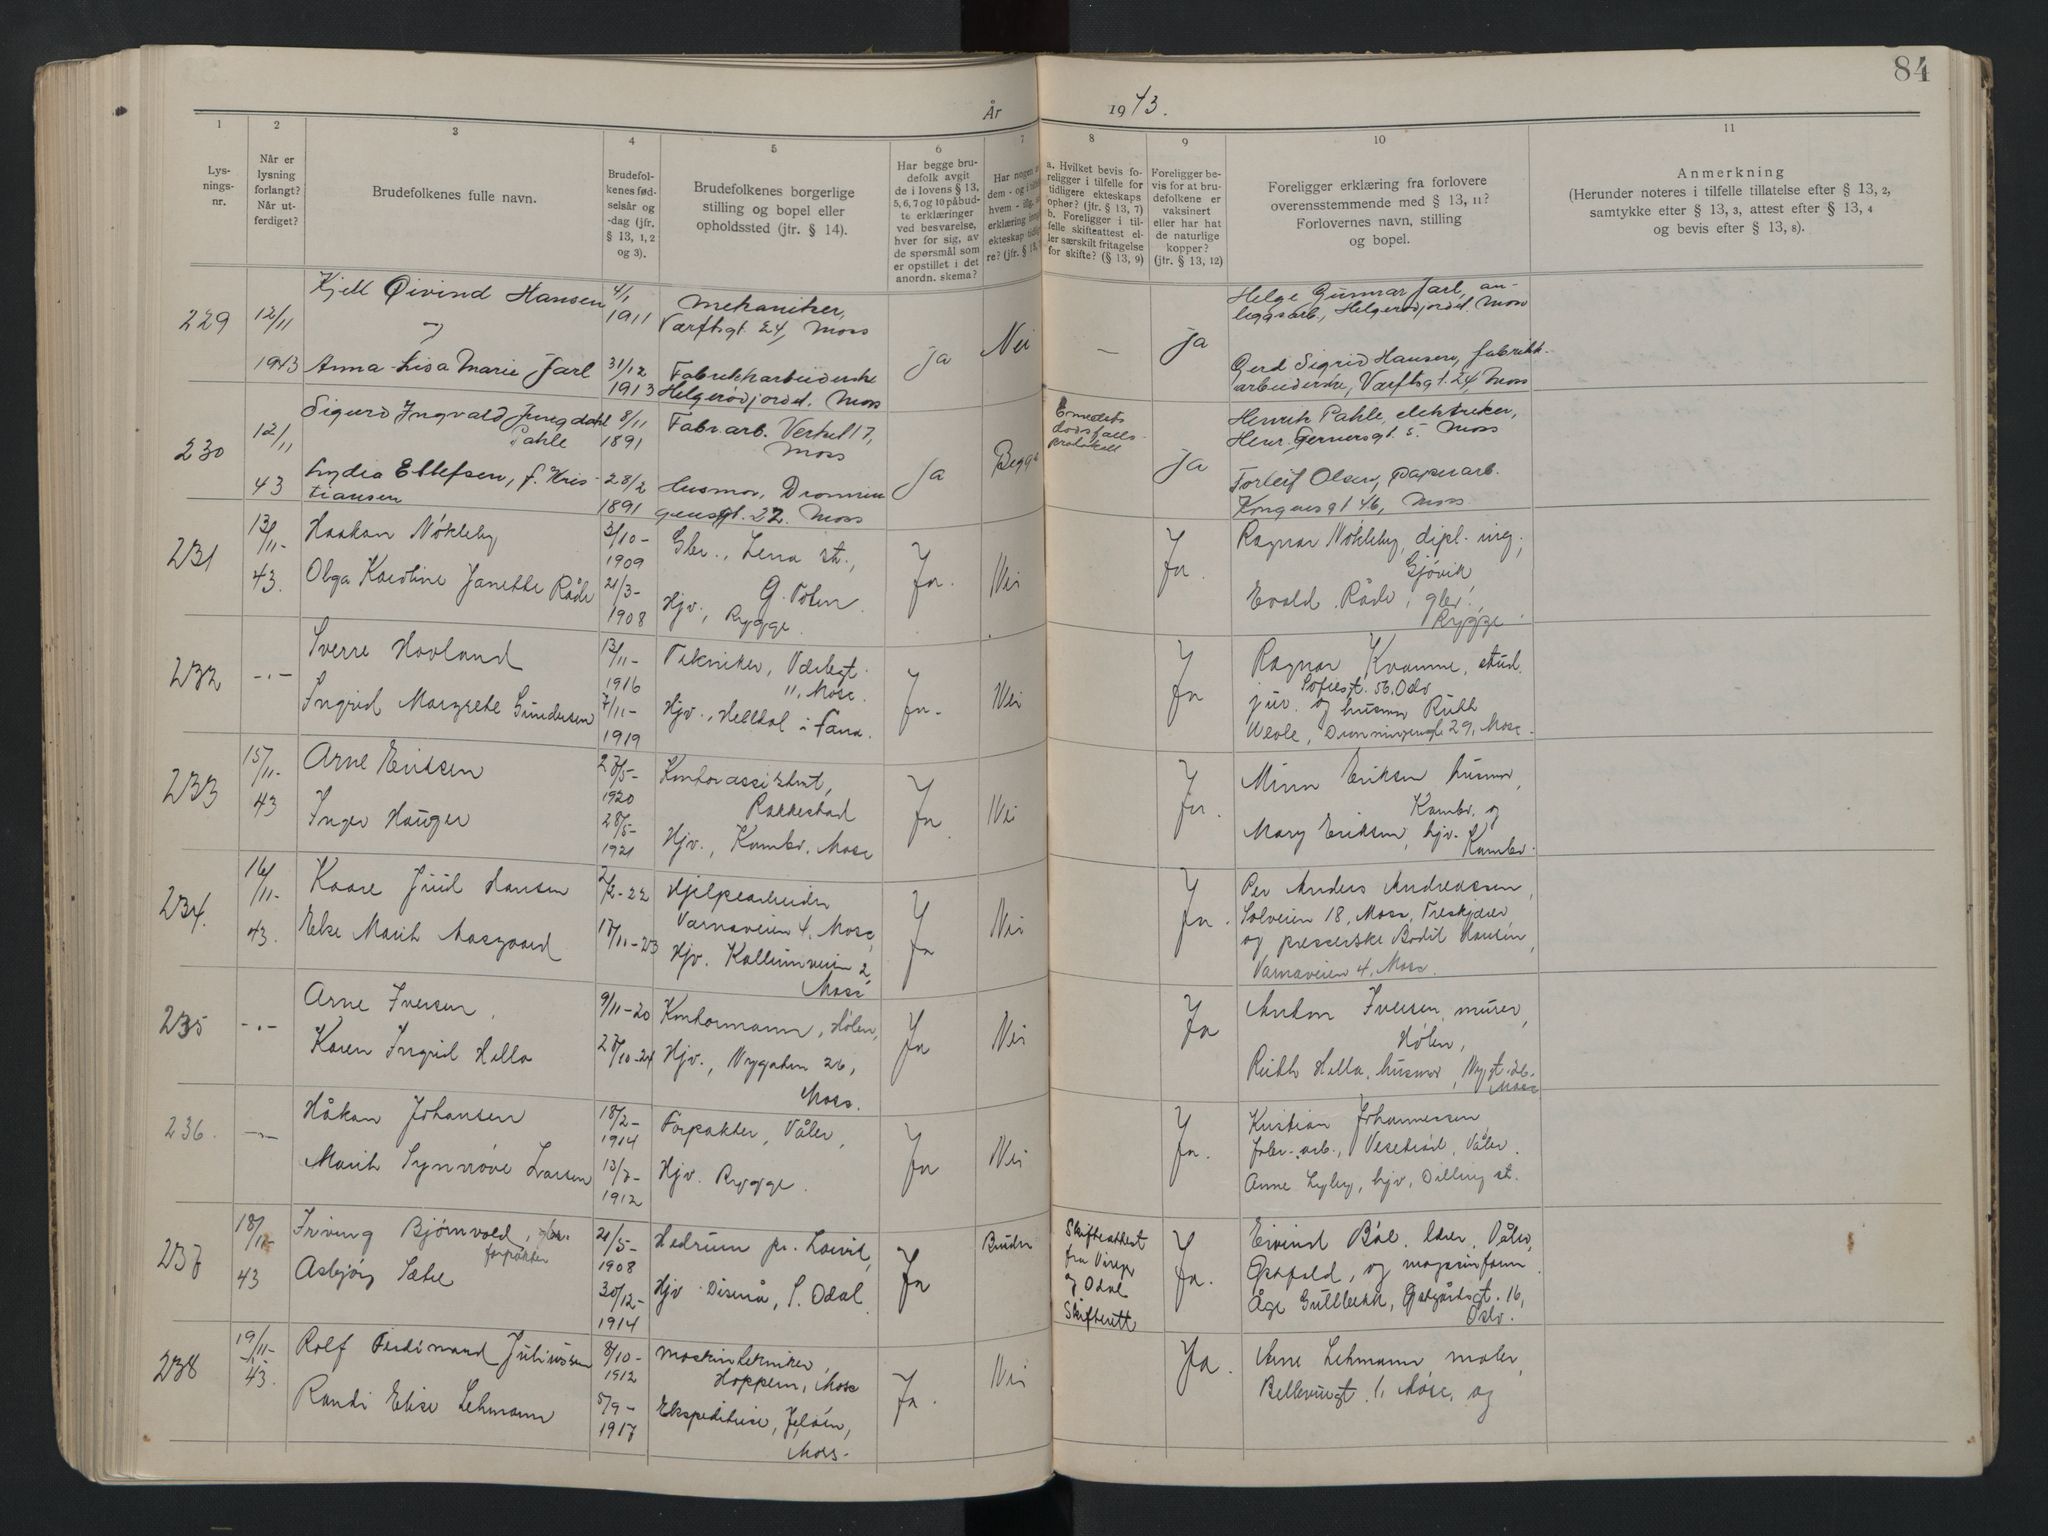 84
År 1943.
1 2 3 4 5 6 7 8 9 10 11
Lysningsnr.
Når er lysning forlangt? Når utferdiget?
Brudefolkenes fulle navn.
Brudefolkenes fødselsår og -dag (jfr. § 13, 1, 2 og 3).
Brudefolkenes borgerlige stilling og bopel eller opholdssted (jfr. § 14).
Har begge brudefolk avgit de i lovens § 13, 5, 6, 7 og 10 påbudte erklæringer ved besvarelse, hver for sig, av de spørsmål som er opstillet i det anordn. skema?
Har nogen
dem - og i
hvem -
erklæring
ekteskap
re? (jfr. § 13,
a. Hvilket bevis foreligger i tilfelle for tidligere ekteskaps ophør? (jfr. § 13, 7)
b. Foreligger i tilfelle skifteattest eller særskilt fritagelse for skifte? (§ 13, 9)
Foreligger bevis for at brudefolkene er vaksinert eller har hat de naturlige kopper? (jfr. § 13, 12)
Foreligger erklæring fra forlovere overensstemmende med § 13, 11? Forlovernes navn, stilling og bopel.
Anmerkning
(Herunder noteres i tilfelle tillatelse efter § 13, 2, samtykke efter § 13, 3, attest efter § 13, 4 og bevis efter § 13, 8).
229
12/11
1943
Kjell Øivind Hansen
Anna-Lisa Marie Jarl
4/1
1911
31/12
1913
Mekaniker,
Værftsgt. 24, Moss
Fabrikkarbeiderske
Helgerødjordet. Moss
Ja
Nei
—
Ja
Helge Gunnar Jarl, an-
leggsarb., Helgerødjordet. Moss
Gerd Sigrid Hansen, fabrikk-
arbeiderske, Værftsgt. 24, Moss
230
12/11
43
Sigurd Ingvald Jungdahl
Pahle
Lydia Ellefsen, f. Kris-
tiansen
8/11
1891
28/2
1891
Fabr.arb. Verket 17,
Moss
Husmor, Dronnin
gensgt. 22. Moss
Ja
Begge
Embedets
dødsfalls-
protokoll
Ja
Henrik Pahle, elektriker,
Henr. Gernersgt. 5. Moss
Torleif Olsen, papirarb.
Kongensgt 46, Moss
231
13/11-
43.
Haakon Nökleby
Olga Karoline Janette Råde
3/10-
1909
21/3-
1908
Gbr., Lena st.,
Ø. Toten.
Hjv., Rygge.
Ja.
Nei
Ja.
Ragnar Nökleby, dipl. ing.,
Gjövik,
Evald Råde, gbr.,
Rygge.
232
-.-
Sverre Hovland
Ingrid Margrete Gundersen
13/11-
1916
7/11-
1919
Tekniker,
11, Moss.
Hjv., Helldal i Fana.
Ja.
Nei
Ja
Ragnar Kvamme, stud.
Sofiesgt. 56, Oslo
jur. og husmor Ruth
Dronningensgt 29, Moss.
233
15/11-
43
Arne Eriksen
Inger Hauger
27/5-
1920
28/5-
1921
Kontorassistent,
Rakkestad
Hjv., Kambo, Moss
Ja.
Nei
Ja.
Minn Eriksen husmor,
Kambo. og
Mary Eriksen, hjv.
Kambo.
234.
16/11-
43.
Kaare Juul Hansen
Else Marit Aasgaard
2/2-22
17/11-23
Hjelpearbeider
Varnaveien 4, Moss,
Hjv. Kallumveien 2,
Moss
Ja
Nei
Ja.
Per Anders Andreassen,
Solveien 18, Moss, Treskjærer,
og presserske Bodil Hansen,
Varnaveien 4, Moss.
235
-.-
Arne Iversen,
Karen Ingrid Holla
9/11-20
27/10-24
Kontormann, Hölen,
Hjv., Nygaten 26,
Moss.
Ja
Nei
Ja
Anton Iversen, murer,
Hölen,
Ruth Holla, husmor, Nygt. 26.
Moss
236.
-.-
Håkon Johansen
Marit Synnöve Larsen
18/2-
1914
13/7-
1912
Forpakter, Våler,
Hjv. Rygge.
Ja
Nei
Ja.
Kristian Johannessen,
fabr.-arb., Våler.
Anne Lyby, hjv., Dilling st.
237
18/11-
43
Irving Bjørnvold, gbr.
forpakter
Asbjörg Sætre
21/5-
1908
30/12-
1914
Hedrum pr. Larvik,
Hjv. Disenå, S. Odal
Ja
Bruden
Skifteattest
fra Vinger
og Odal
Skifterett
Ja.
Eivind Böe, lærer, Våler,
Østfold, og magasinform.
Åge Gullbekk, 16,
Oslo.
238
19/11-
43.
Rolf Ferdinand Juliussen
Randi Elise Lehmann
8/10-
1912
5/9-
1917
Maskintekniker,
Hoppern, Moss
Ekspeditrise, Jelöen,
Moss.
Ja.
Nei
Ja.
Arne Lehmann, maler,
Bellevuegt. 1, Moss, og